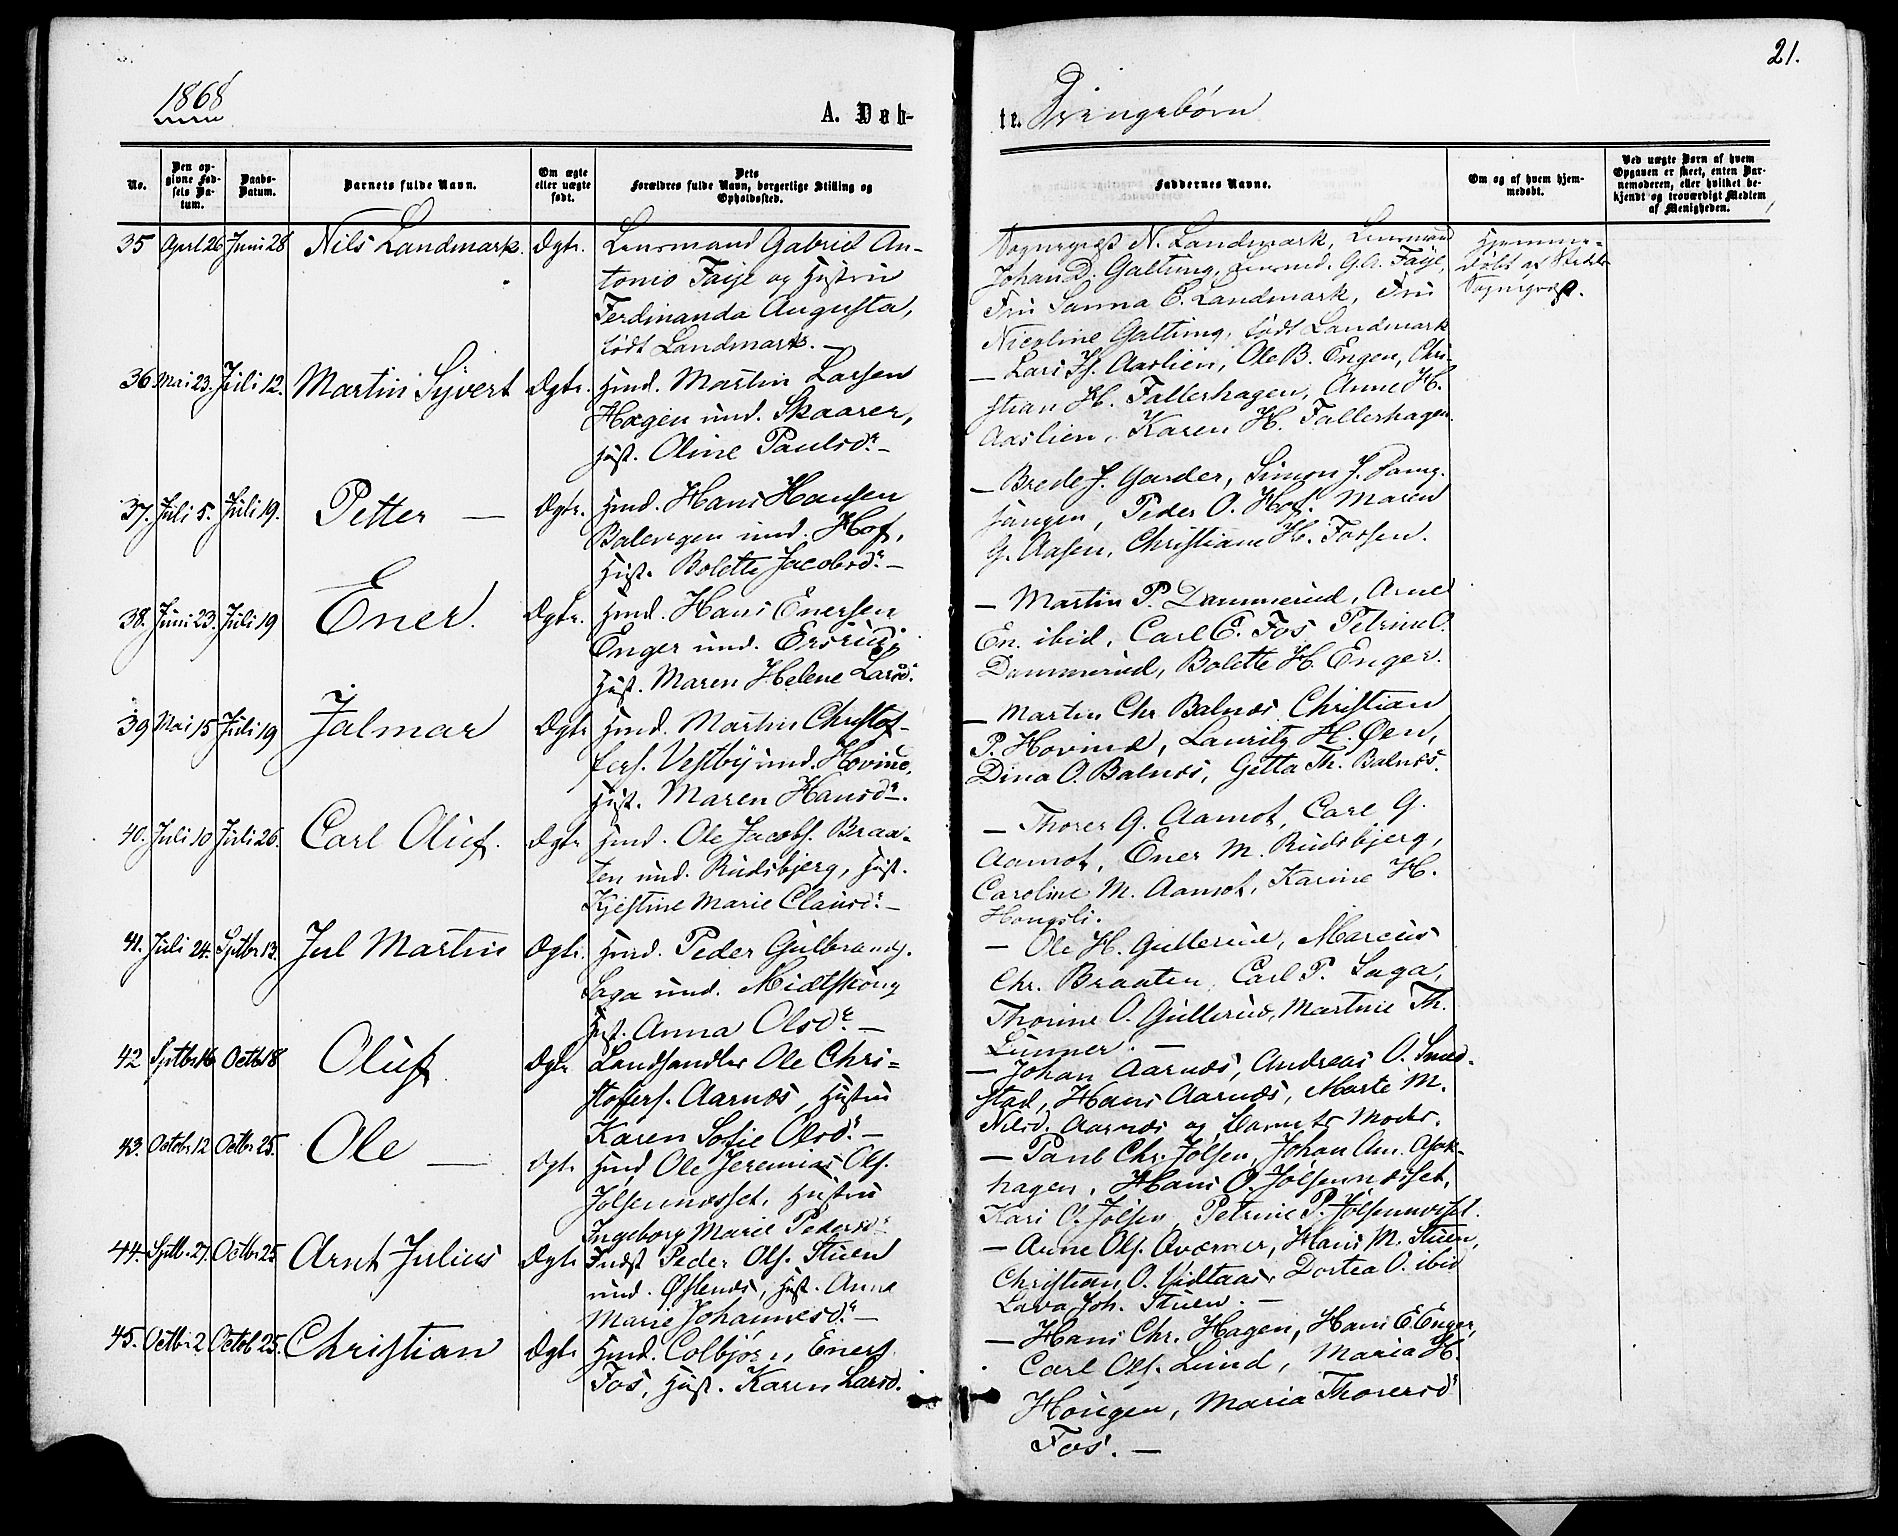 21.
1868
A. Døb-
te. Drengebørn
No.
Den op-
givne Fød-
sels Da-
tum.
Daabs-
Datum.
Barnets fulde Navn.
Om ægte
eller uægte
født.
Dets
Forældres fulde Navn, borgerlige Stilling og
Opholdssted.
Faddernes Navne.
Om og af hvem hjem-
medøbt.
Ved uægte Børn af hvem
Opgaven er skeet, enten Bar-
nemoderen, eller hvilket be-
kjendt og troværdigt Medlem
af Menigheden.
35 Aprl. 26 Juni 28 Nils Landmark. Ægte. Lensmand Gabriel An-
tonio Faije og Hustru
Ferdinanda Augusta,
født Landmark. —
Sogneprest N. Landmark, Lensmand
Johan D. Galtung, Lensmd. G. A. Faije,
Fru Sanna C. Landmark, Fru
Nicoline Galtung, født Landmark
Hjemme-
døbt af
Sogneprest.
36. Mai 23. Juli 12. Martin Syvert Ægte. Husmd. Martin Larsen
Hagen und. Skaarer,
Hust. Oline Paulsdr. —
— Lars H. Aaslien, Ole B. Engen, Chri-
stian H. Fallerhagen, Anne H.
Aaslien, Karen H. Fallerhagen.
37. Juli 5. Juli 19. Petter — Ægte. Husmd. Hans Hansen
und. Hof,
Hust. Bolette Jacobsdr. —
— Brede J. Garder, Simon J.
Peder O. Hof. Maren
G. Aasen, Christiane H. Fossen.
38. Juni 23. Juli 19 Ener. Ægte. Husmd. Hans Enersen
Enger und. Ersrud,
Hust. Maren Helene Larsdr.
— Martin P. Dammerud, Arne
En. ibid, Carl C. Fos Petrine O.
Dammerud, Bolette H. Enger.
39 Mai 15 Juli 19 Jalmar Ægte Husmd. Martin Christof-
fers. Vestby und. Hovind,
Hust. Maren Hansdr.
— Martin Chr. Balnæs Christian
P. Hovind, Lauritz H. Øen,
Dina O. Balnæs, Getta Th. Balnæs.
40. Juli 10 Juli 26. Carl Oluf. Ægte Husmd. Ole Jacobs. Braa-
ten und. Rudsbjerg, Hust.
Kjestine Marie Clausdr. —
— Thorer G. Aamot, Carl G.
Aamot, Ener M. Rudsbjerg,
Caroline M. Aamot, Karine H.
Hougsli.
41. Juli 24. Sptbr 13. Jul Martin Ægte. Husmd. Peder Gulbrands.
Saga und. Midtskoug
Hust. Anna Olsdr. —
— Ole H. Gullerud, Marcus
Chr. Braaten, Carl P. Saga,
Thorine O. Gullerud, Martine Th.
Lunner. —
42 Sptbr 16 Octbr 18 Oluf Ægte Landhandler Ole Chri-
stoffers. Aarnæs, Hustru
Karen Sofie Olsdr. —
— Johan Aarnæs, Andreas O. Smed-
stad, Hans Aarnæs, Marte M.
Nilsd. Aarnæs og Barnets Moder.
43. Octobr 12 Octbr 25. Ole — Ægte. Husmd. Ole Jeremias Ols.
Jølsenmosset, Hustru
Ingeborg Marie Pedersdr.
— Paul Chr. Jølsen, Johan An. Ask-
hagen, Hans O. Jølsenmosset,
Kari O. Jølsen Petrine P. Jølsenmosset.
44. Sptbr. 27. Octbr 25 Arnt Julius Ægte Indst Peder Ols. Stuen
und. Østenæs, Hust. Anna
Marie Johannesdr. —
— Arne Ols. Qværner, Hans M. Stuen,
Christian O. Vidtaas, Dortea O. ibid
Lava Joh. Stuen. —
45. Octbr 2 Octob 25. Christian Ægte Husmd. Colbjørn Eners.
Fos, Hust. Karen Larsd.
— Hans Chr. Hagen, Hans E. Enger,
Carl Ols. Lund, Maria H.
Hougen, Maria Thorersdr
Fos. —